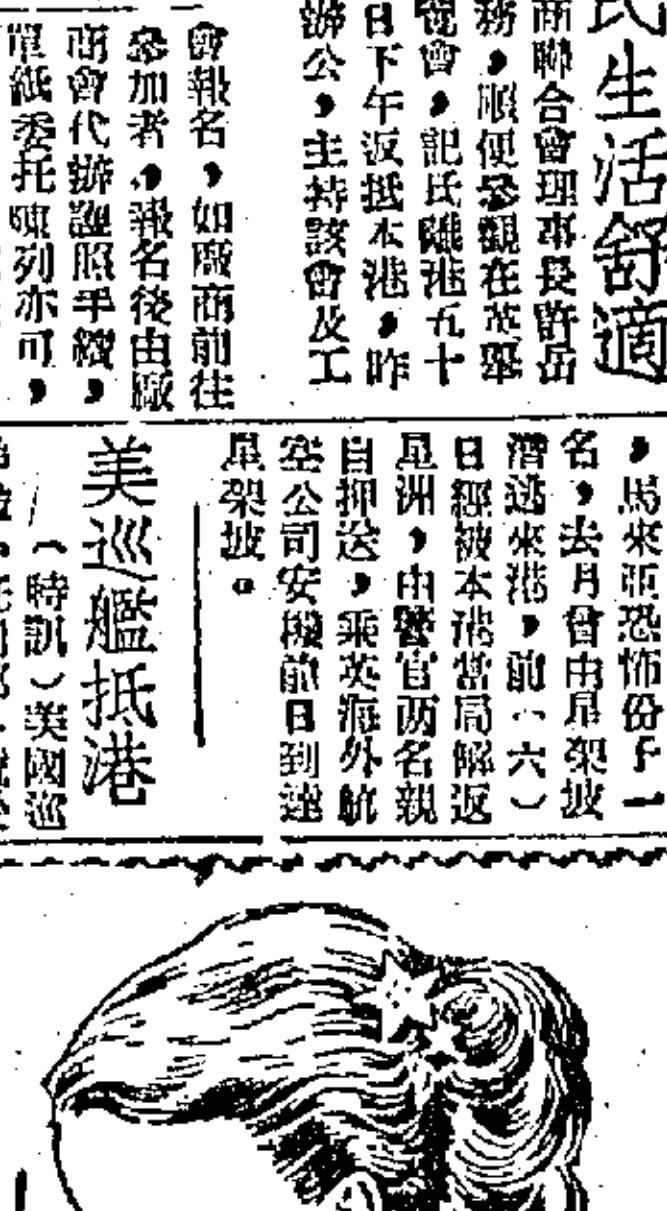 民生活舒適
商聯合會理事長許岳
務，順便參觀在英舉
覽會，記氏離港五十
日下午返抵本港，昨
辦公，主持該會及工
會報名，如廠商前往
參加者，報名後由廠
商會代辦護照手續，
單紙委托陳列亦可，
，馬來亞恐怖份子一
名，去月曾由星架坡
潛逃來港，前（六）
日經被本港當局解返
星洲，由警官两名親
自押送，乘英海外航
空公司安機前日到達
星架坡。
美巡艦抵港
（時訊）美國巡